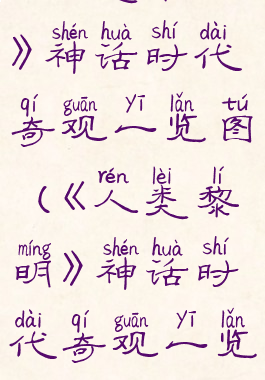 shén huà shí dài
》神话时代
qí guān yī lǎn tú
奇观一览图
rén lèi lí
（《人类黎
míng shén huà shí
明》神话时
dài qí guān yī lǎn
代奇观一览